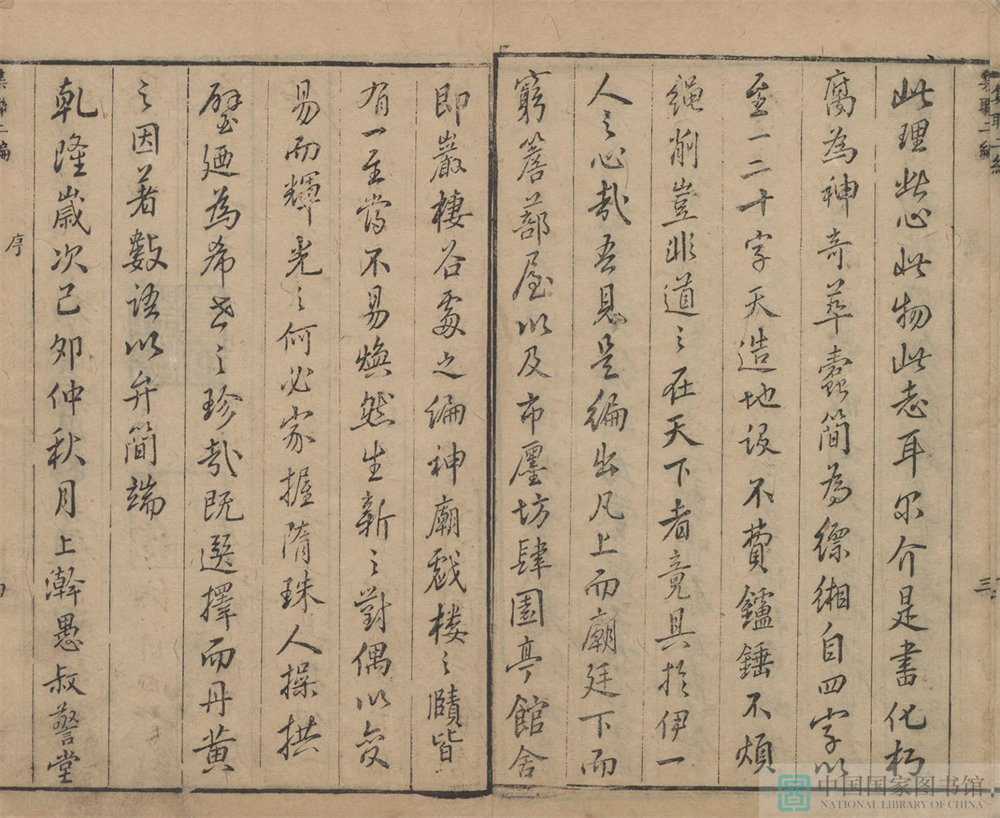 此理此心此物此志耳尔介是書化朽
腐為神奇萃蠹簡為縹緗自四字以
至一二十字天造地设不費鑪錘不煩
绳削豈非道之在天下者竟具於伊一
人之心哉吾見是编出凡上而廟廷下而
窮簷蔀屋以及市廛坊肆園亭館舍
即巖棲谷處之编神廟戲楼之牘皆
有一至當不易焕然生新之對偶以交
易而輝光之何必家握隋珠人操拱
璧廼為希世之珍哉既選擇而丹黄
之因著數语以弁简端
乾隆歲次己夘仲秋月上澣愚叔警堂
序
三
中国国家图书馆
NATIONAL LIBRARY OF CHINA